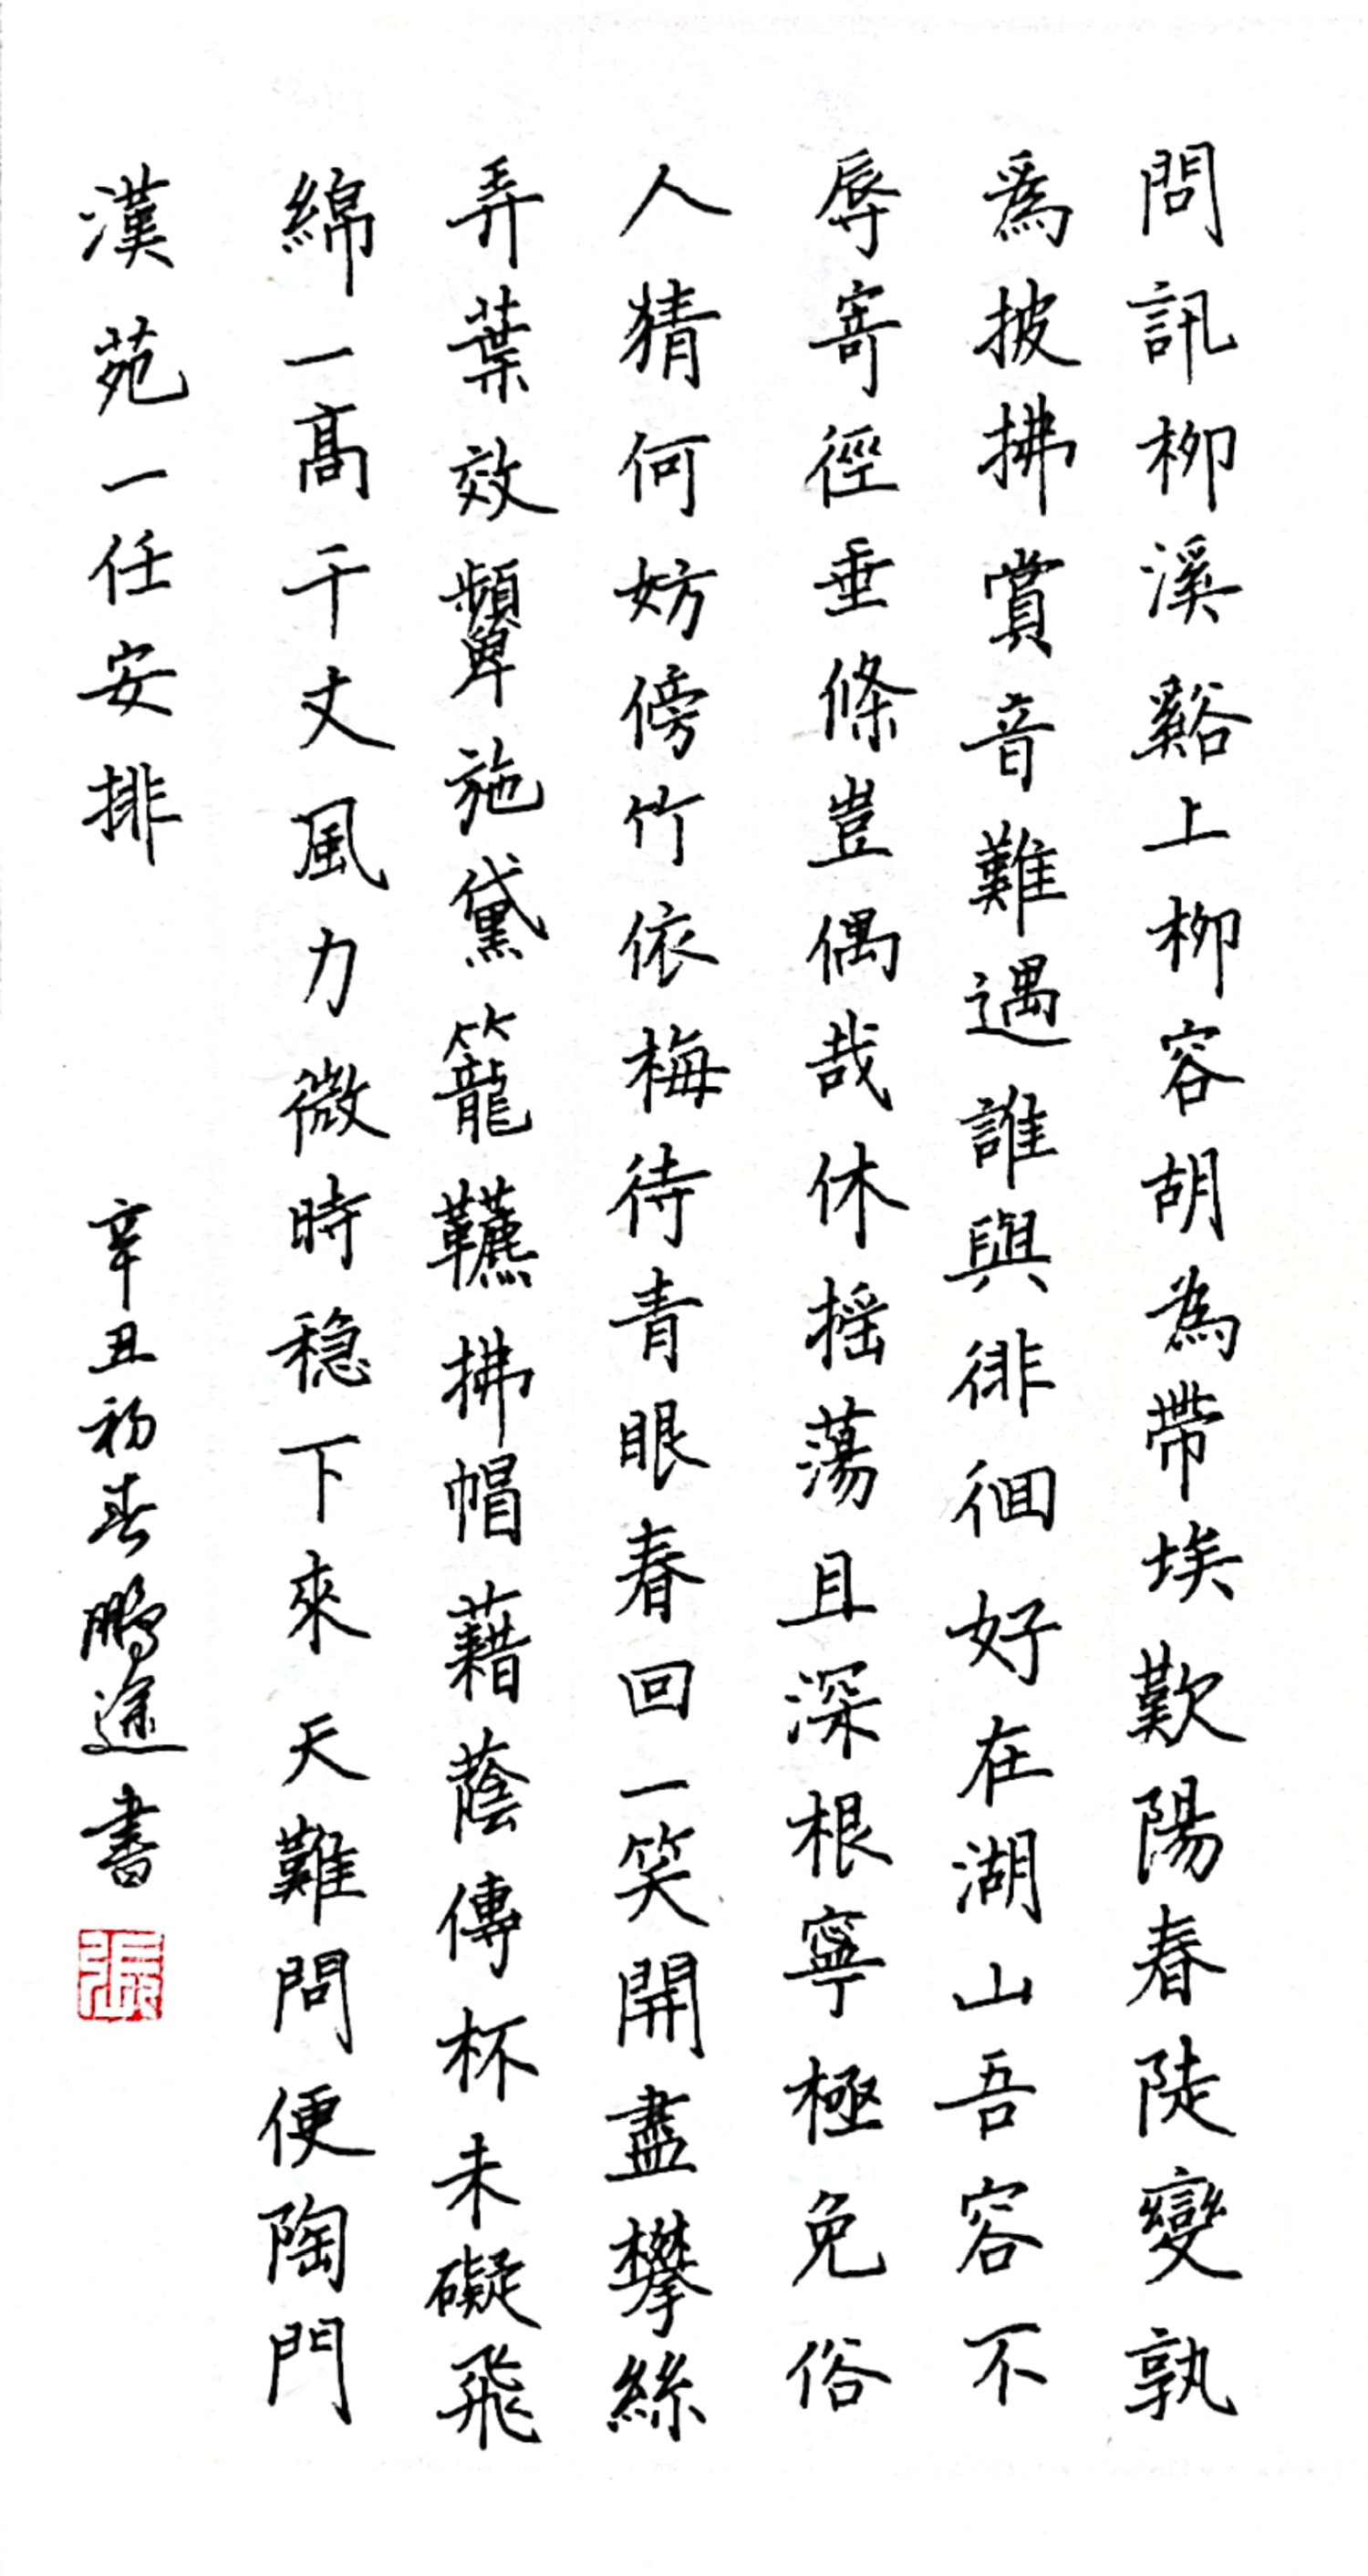 問訊柳溪谿上柳容胡為帶埃歎陽春陡變孰
爲披拂賞音難遇誰與徘徊好在湖山吾容不
辱寄徑垂條豈偶哉休摇蕩且深根寧極免俗
人猜何妨傍竹依梅待青眼春回一笑開盡攀絲
弄葉效顰施黛籠韉拂帽藉蔭傳杯未礙飛
綿一高千丈風力微時穏下來天難問便陶門
漢苑一任安排
辛丑初春鵬途書
張